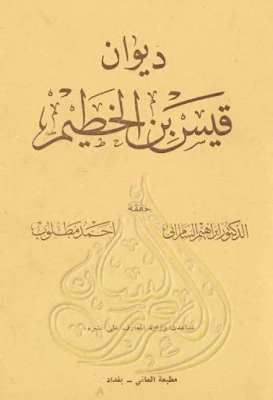 ديوان
قيس بن الخطيم
حققه
الدكتور ابراهيم السامرائي احمد مطلوب
ساعدت وزارة المعارف على نشره
مطبعة العاني - بغداد